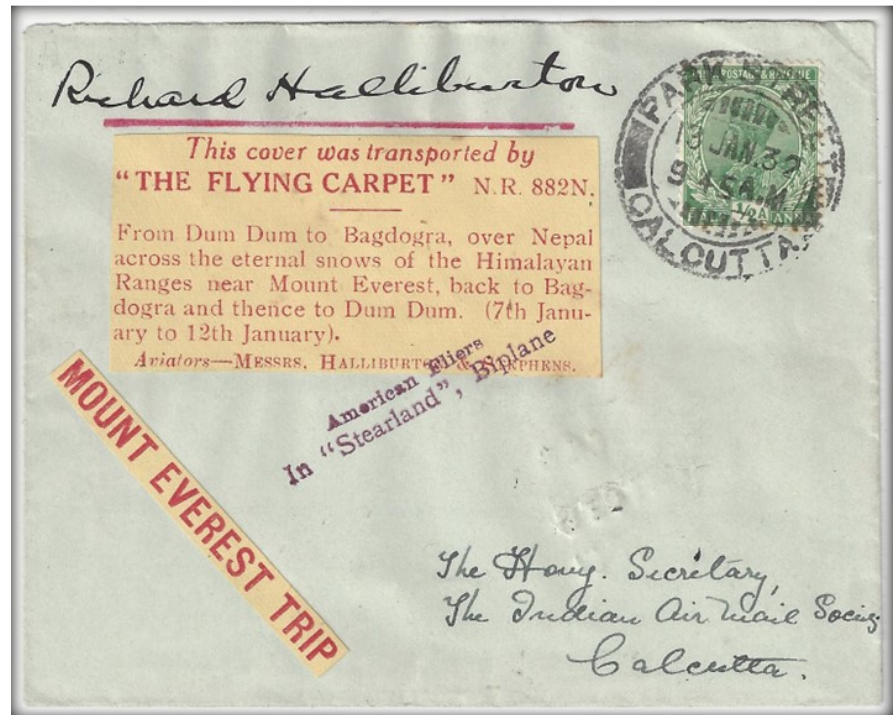 Richard Halliburton
This cover was transported by
"THE FLYING CARPET" N.R. 882N.
From Dum Dum to Bagdogra, over Nepal
across the eternal snows of the Himalayan
Ranges near Mount Everest, back to Bag-
dogra and thence to Dum Dum. (7th Janu-
ary to 12th January).
Aviators—MESSRS. HALLIBURTON & STEPHENS.
American Fliers
In "Stearland", Biplane
MOUNT EVEREST TRIP
POSTAGE & REVENUE
½A ANNA
PARK STREET
13 JAN. 32
9 45 A.M
CALCUTTA
The Hony. Secretary,
The Indian Air Mail Society
Calcutta.